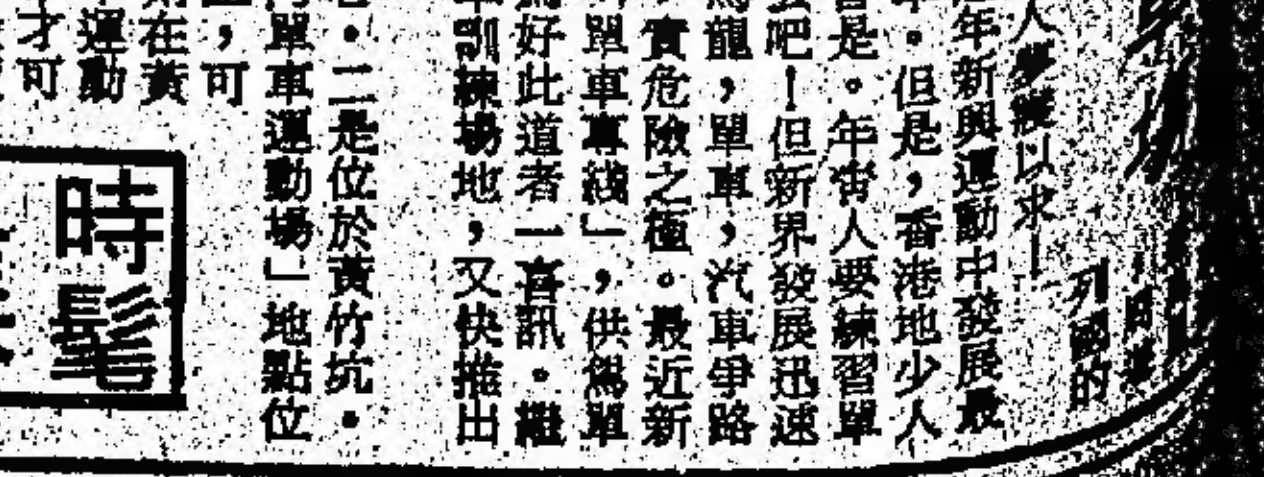 列國的
人夢寐以求—
年新興運動中發展最
。但是，香港地少人
是。年靑人要練習單
吧！但新界發展迅速
龍，單車，汽車爭路
，實危險之極。最近新
單車專綫」，供駕單
好此道者一喜訊。繼
訓練場地，又快推出
。二是位於黃竹坑。
單車運動場」地點位
，可
在黃
運動
才可
時髦